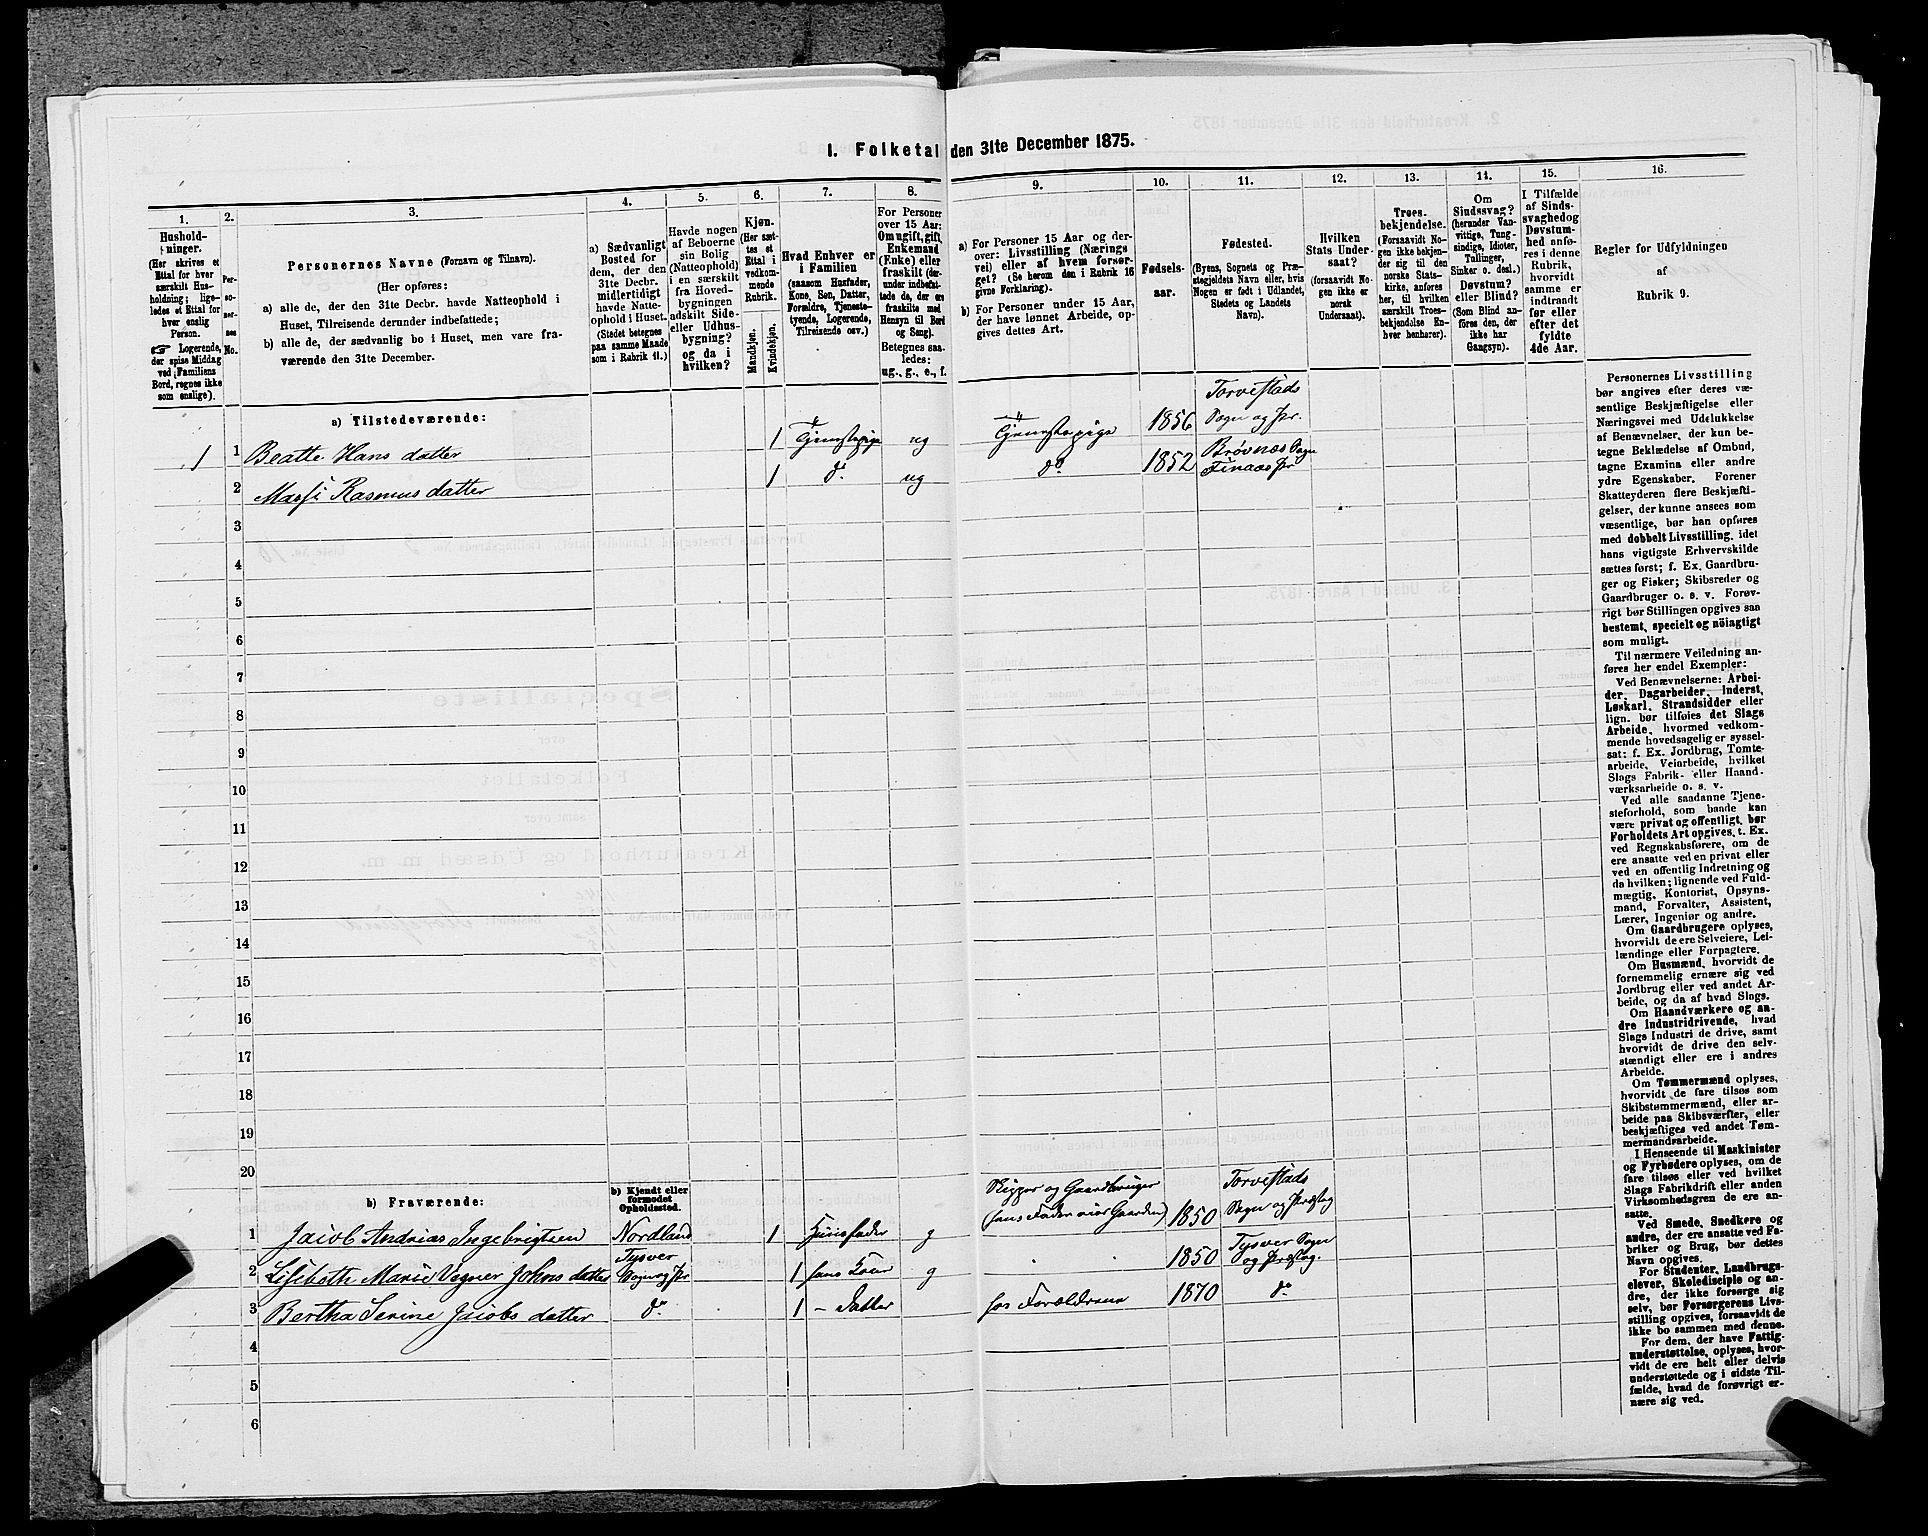 1. Folketal den 31te December 1875.
1.
2.
3.
4.
5.
6.
7.
8.
9.
10.
11.
12.
13.
14.
15.
16.
Hushold-
ninger.
(Her skrives et
Ettal for hver
særskilt Hus-
holdning; lige-
ledes et Ettal for
hver enslig
Person.
☞ Logerende,
der spise Middag
ved Familiens
Bord, regnes ikke
som enslige).
Per-
so-
ner-
nes
No.
Personernes Navne (Fornavn og Tilnavn).
(Her opføres:
a) alle de, der den 31te Decbr. havde Natteophold i
Huset, Tilreisende derunder indbefattede;
b) alle de, der sædvanlig bo i Huset, men vare fra-
værende den 31te December.
a) Sædvanligt
Bosted for
dem, der den
31te Decbr.
midlertidigt
havde Natte-
ophold i Huset.
(Stedet betegnes
paa samme Maade
som i Rubrik 11.)
Havde nogen
af Beboerne
sin Bolig
(Natteophold)
i en særskilt
fra Hoved-
bygningen
adskilt Side-
eller Udhus-
bygning?
og da i
hvilken?
Kjøn.
(Her sæt-
tes et
Ettal i
vedkom-
mende
Rubrik.
Mandkjøn.
Kvindekjøn.
Hvad Enhver er
i Familien
(saasom Husfader,
Kone, Søn, Datter,
Forældre, Tjeneste-
tyende, Logerende,
Tilreisende osv.)
For Personer
over 15 Aar:
Om ugift, gift,
Enkemand
(Enke) eller
fraskilt (der-
under indbefat-
tede de, der ere
fraskilte med
Hensyn til Bord
og Seng).
Betegnes saa-
ledes:
ug., g., e., f.
a) For Personer 15 Aar og der-
over: Livsstilling (Nærings
vei) eller af hvem forsør-
get? (Se herom den i Rubrik 16
givne Forklaring).
b) For Personer under 15 Aar,
der have lønnet Arbeide, op-
gives dettes Art.
Fødsels-
aar.
Fødested.
(Byens, Sognets og Præ-
stegjeldets Navn eller, hvis
Nogen er født i Udlandet,
Stedets og Landets
Navn).
Hvilken
Stats Under-
saat?
(forsaavidt No-
gen ikke er
norsk
Undersaat).
Troes-
bekjendelse.
(Forsaavidt No-
gen ikke bekjen-
der sig til den
norske Stats-
kirke, anføres
her, til hvilken
særskilt Troes-
bekjendelse En-
hver henhører).
Om
Sindssvag?
(herunder Van-
vittige, Tung-
sindige, Idioter,
Tallinger,
Sinker o. desl.)
Døvstum?
eller Blind?
(Som Blind an-
føres den, der
ikke har
Gangsyn).
I Tilfælde
af Sinds-
svaghed og
Døvstum-
hed anfø-
res i denne
Rubrik,
hvorvidt
samme er
indtraadt
før eller
efter det
fyldte
4de Aar.
Regler for Udfyldningen
af
Rubrik 9.
a) Tilstedeværende:
1 1 Beatte Hans datter 1 Tjenstepige ug Tjenstepige 1856 Torvestads
Sogn og Pr.
2 Massi Rasmus datter 1 do. ug do 1852 Brøvnæs Sogn
Finaas Pr
3
4
5
6
7
8
9
10
11
12
13
14
15
16
17
18
19
20
b) Fraværende:
b) Kjendt eller
formodet
Opholdssted.
1 Jacob Andrias Ingebrigtsen Nordland 1 Huusfader g Skipper og Gaardbruger
(hans Fader eier Gaarden) 1850 Torvestads
Sogn og Præsteg
2 Lisibeth Marie Vegner Johns datter Tysver
Sogn og Pr 1 hans Kone g 1850 Tysver Sogn
og Præsteg.
3 Bertha Serine Jacobs datter do. 1 - Datter hos Forældrene 1870 do.
4
5
6
Personernes Livsstilling
bør angives efter deres væ-
sentlige Beskjæftigelse eller
Næringsvei med Udelukkelse
af Benævnelser, der kun be-
tegne Beklædelse af Ombud,
tagne Examina eller andre
ydre Egenskaber. Forener
Skatteyderen flere Beskjæfti-
gelser, der kunne ansees som
væsentlige, bør han opføres
med dobbelt Livsstilling, idet
hans vigtigste Erhvervskilde
sættes først; f. Ex. Gaardbru-
ger og Fisker; Skibsreder og
Gaardbruger o. s. v. Forøv-
rigt bør Stillingen opgives saa
bestemt, specielt og nöiagtigt
som muligt.
Til nærmere Veiledning an-
føres her endel Exempler:
Ved Benævnelserne: Arbei-
der, Dagarbeider, Inderst,
Løskarl, Strandsidder eller
lign. bør tilføies det Slags
Arbeide, hvormed vedkom-
mende hovedsagelig er syssel-
sat: f. Ex. Jordbrug, Tomte-
arbeide, Veiarbeide, hvilket
Slags Fabrik- eller Haand-
værksarbeide o. s. v.
Ved alle saadanne Tjene-
steforhold, som baade kan
være privat og offentligt, bør
Forholdets Art opgives, t. Ex.
ved Regnskabsførere, om de
ere ansatte ved en privat eller
ved en offentlig Indretning og
da hvilken; lignende ved Fuld-
mægtig, Kontorist, Opsyns-
mand, Forvalter, Assistent,
Lærer, Ingeniør og andre.
Om Gaardbrugere oplyses,
hvorvidt de ere Selveiere, Lei-
lændinge eller Forpagtere.
Om Husmænd, hvorvidt de
fornemmelig ernære sig ved
Jordbrug eller ved andet Ar-
beide, og da af hvad Slags.
Om Haandværkere og an-
dre Industridrivende, hvad
Slags Industri de drive, samt
hvorvidt de drive den selv-
stændigt eller ere i andres
Arbeide.
Om Tømmermænd oplyses,
hvorvidt de fare tilsøs som
Skibstømmermænd, eller ar-
beide paa Skibsværfter, eller
beskjæftiges ved andet Tøm-
mermandsarbeide.
I Henseende til Maskinister
og Fyrbødere oplyses, om de
fare tilsøs eller ved hvilket
Slags Fabrikdrift eller anden
Virksomhedsgren de ere an-
satte.
Ved Smede, Snedkere og
andre, der ere ansatte ved Fa-
briker og Brug, bør dettes
Navn opgives.
For Studenter, Landbrugs-
elever, Skoledisciple og an-
dre, der ikke forsørge sig
selv, bør Forsørgerens Livs-
stilling opgives, forsaavidt de
ikke bo sammen med denne.
For dem, der have Fattig-
understøttelse, oplyses, hvor-
vidt de ere helt eller delvis
understøttede og i sidste Til-
fælde, hvad de forøvrigt er-
nære sig ved.